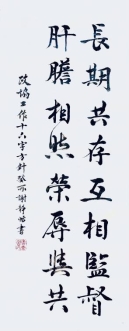 長期共存互相監督
肝膽相照榮辱與共
政協工作十六字方針癸酉謝靜書